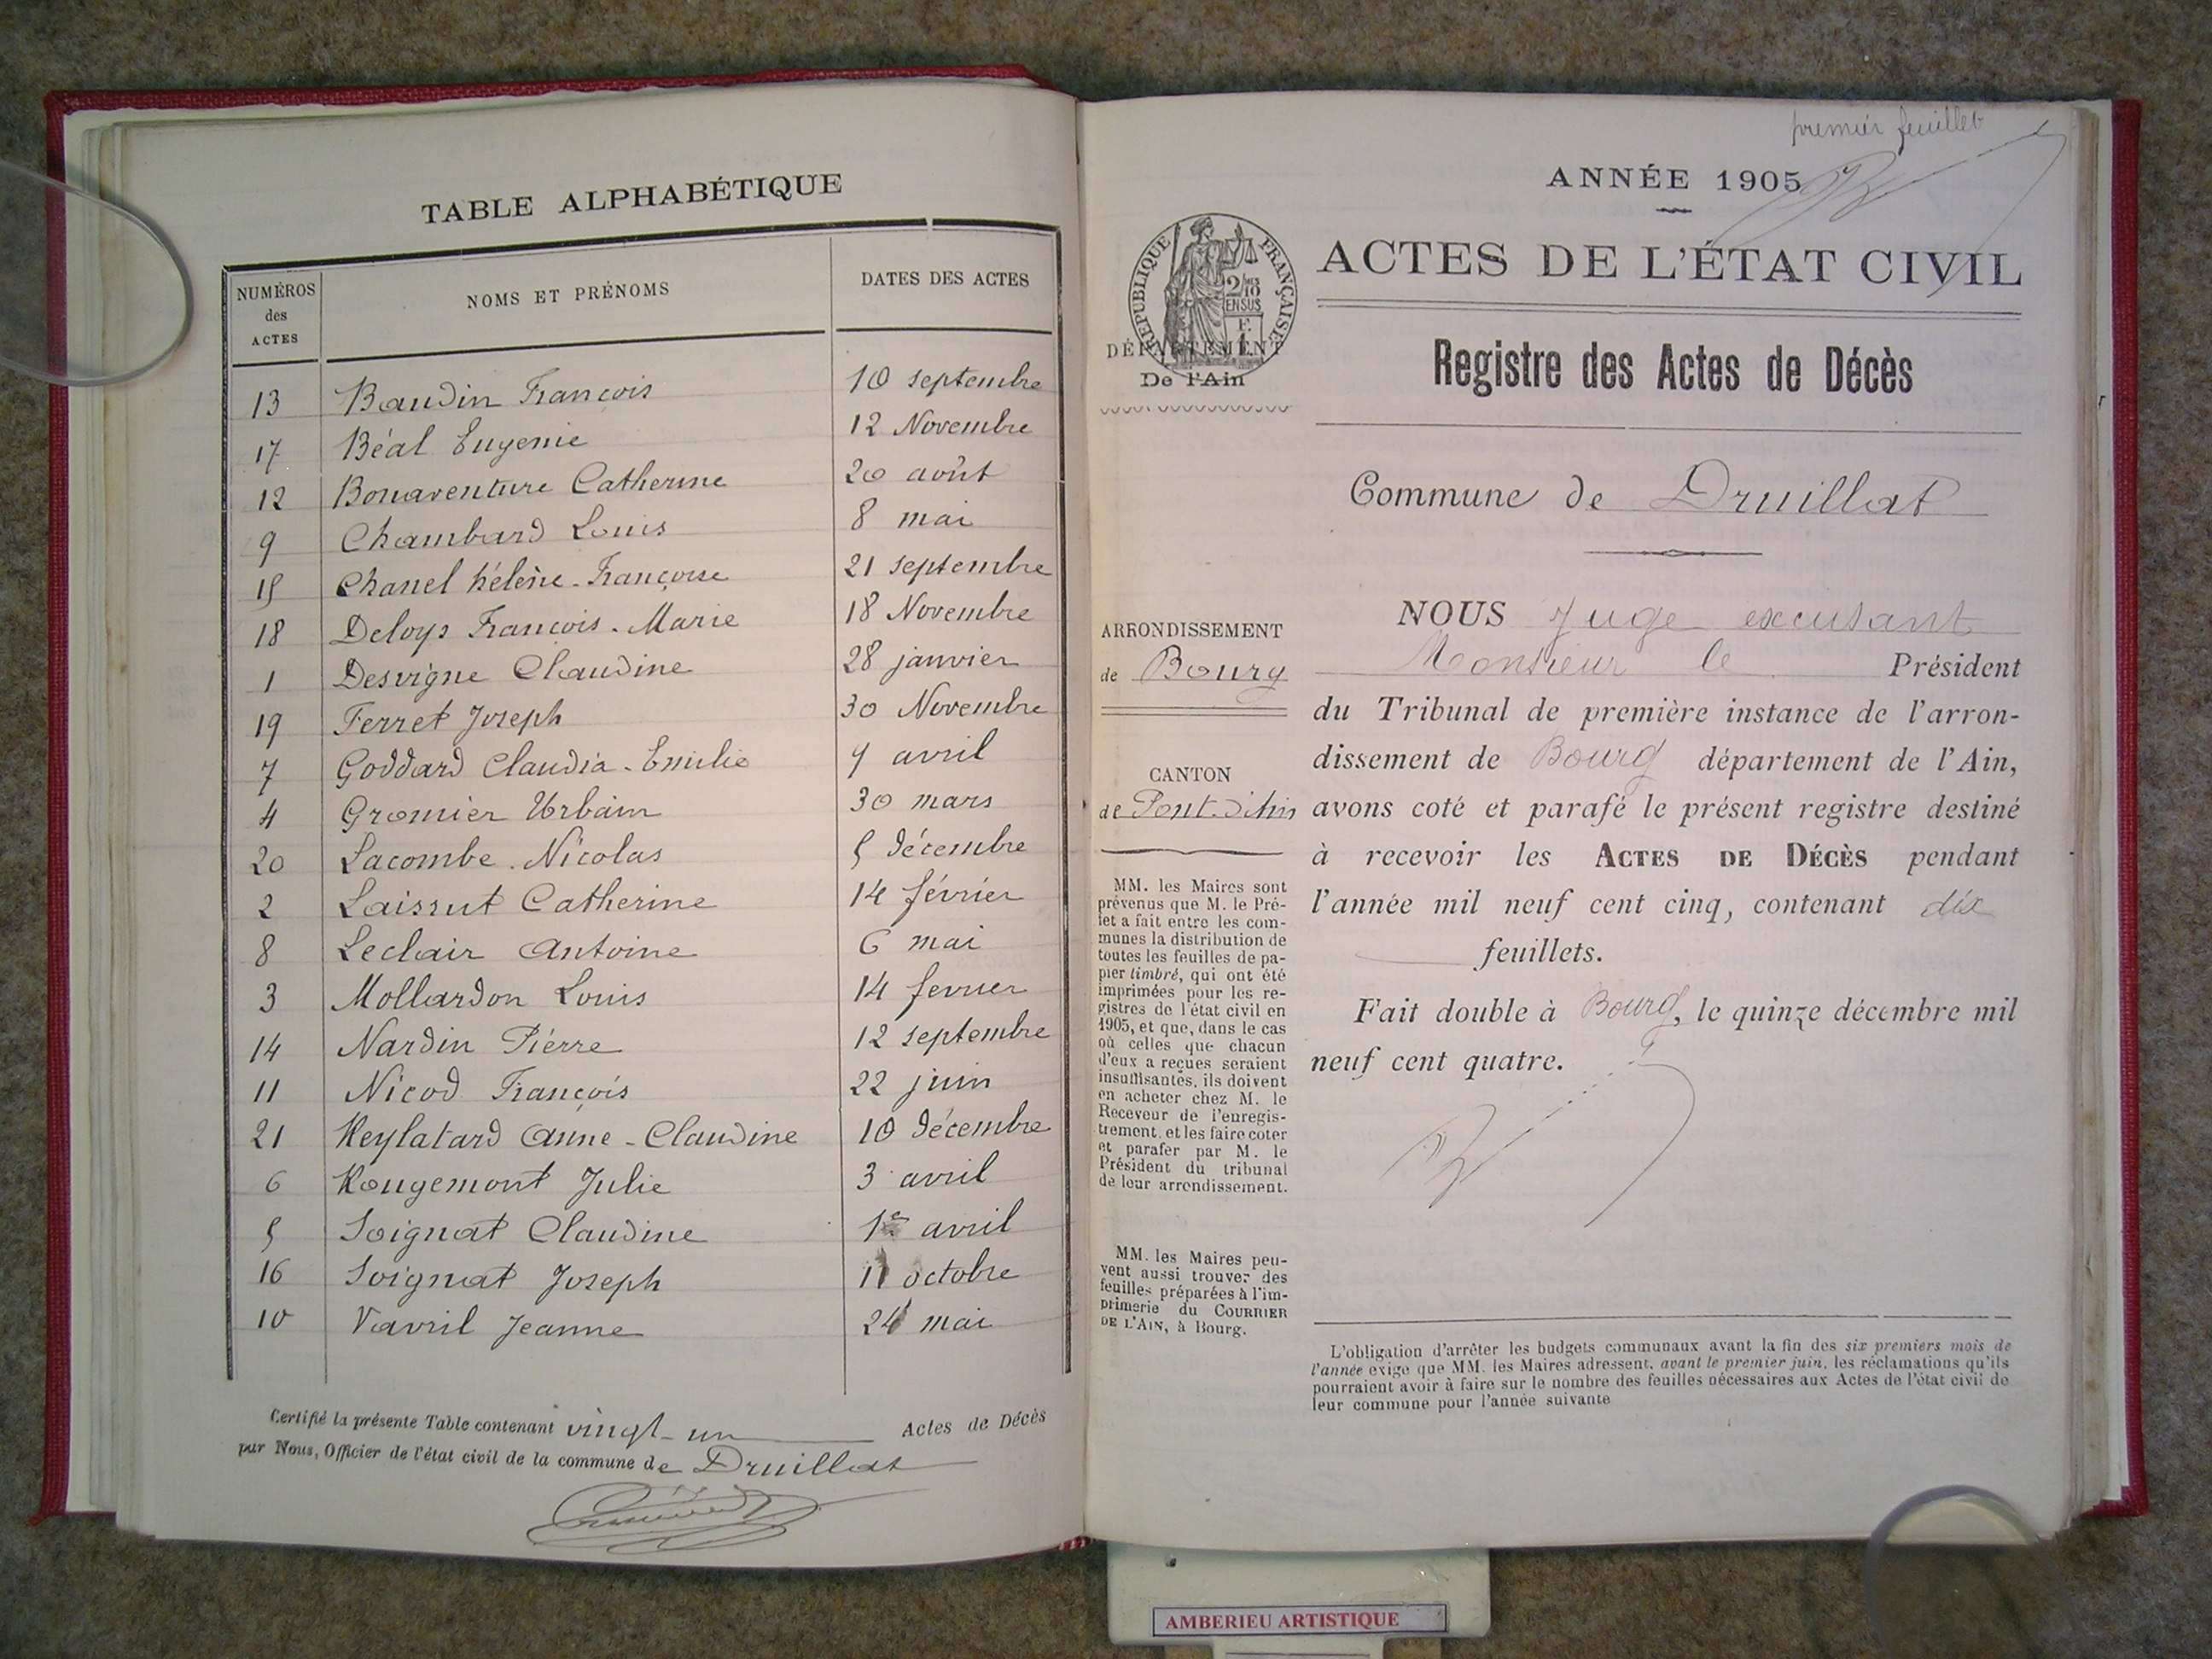 TABLE ALPHABÉTIQUE
NUMÉROS des ACTES NOMS ET PRÉNOMS DATES DES ACTES
13 Baudin François 10 septembre
17 Béal Eugenie 12 Novembre
12 Bonaventure Catherine 20 août
9 Chambard Louis 8 mai
15 Chanel hélène-Françoise 21 septembre
18 Deloys François-Marie 18 Novembre
1 Desvigne Claudine 28 janvier
19 Ferret Joseph 30 Novembre
7 Goddard Claudia-Emilie avril
4 Gromier Urbain 30 mars
20 Lacombe Nicolas 5 décembre
2 Laissut Catherine 14 février
8 Leclair Antoine 6 mai
3 Mollardon Louis 14 fevrier
14 Nardin Piérre 12 septembre
11 Nicod François 22 juin
21 Reylatard Anne-Claudine 10 décembre
6 Rougemont Julie 3 avril
5 Soignat Claudine 1er avril
16 Soignat Joseph 11 octobre
10 Vavril Jeanne 24 mai
Certifié la présente Table contenant vingt-un Actes de Décès
par Nous, Officier de l'état civil de la commune de Druillat
premier feuillet
ANNÉE 1905
RÉPUBLIQUE FRANÇAISE
2/10
EN SUS
F.
1
ACTES DE L'ÉTAT CIVIL
DÉPARTEMENT
De l'Ain
Registre des Actes de Décès
Commune de Druillat
ARRONDISSEMENT
de Bourg
CANTON
de Pont-d'Ain
MM. les Maires sont
prévenus que M. le Pré-
fet a fait entre les com-
munes la distribution de
toutes les feuilles de pa-
pier timbré, qui ont été
imprimées pour les re-
gistres de l'état civil en
1905, et que, dans le cas
où celles que chacun
d'eux a reçues seraient
insuffisantes, ils doivent
en acheter chez M. le
Receveur de l'enregis-
trement, et les faire coter
et parafer par M. le
Président du tribunal
de leur arrondissement.
MM. les Maires peu-
vent aussi trouver des
feuilles préparées à l'im-
primerie du COURRIER
DE L'AIN, à Bourg.
NOUS Juge excusant
Monsieur le Président
du Tribunal de première instance de l'arron-
dissement de Bourg département de l'Ain,
avons coté et parafé le présent registre destiné
à recevoir les ACTES DE DÉCÈS pendant
l'année mil neuf cent cinq, contenant dix
feuillets.
Fait double à Bourg, le quinze décembre mil
neuf cent quatre.
L'obligation d'arrêter les budgets communaux avant la fin des six premiers mois de
l'année exige que MM. les Maires adressent, avant le premier juin, les réclamations qu'ils
pourraient avoir à faire sur le nombre des feuilles nécessaires aux Actes de l'état civil de
leur commune pour l'année suivante
AMBERIEU ARTISTIQUE